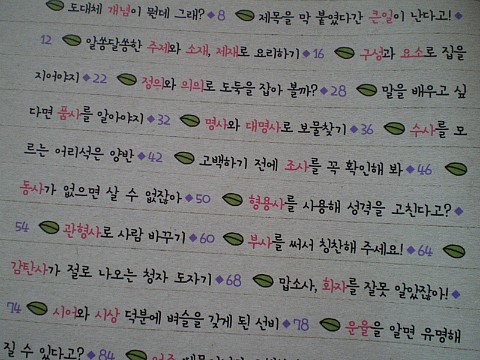 도대체 개념이 뭔데 그래?◆8 제목을 막 붙였다간 큰일이 난다고!◆
12 알쏭달쏭한 주제와 소재, 제재로 요리하기◆16 구성과 요소로 집을
지어야지◆22 정의와 의의로 도둑을 잡아 볼까?◆28 말을 배우고 싶
다면 품사를 알아야지◆32 명사와 대명사로 보물찾기◆36 수사를 모
르는 어리석은 양반◆42 고백하기 전에 조사를 꼭 확인해 봐◆46
동사가 없으면 살 수 없잖아◆50 형용사를 사용해 성격을 고친다고?◆
54 관형사로 사람 바꾸기◆60 부사를 써서 칭찬해 주세요!◆64
감탄사가 절로 나오는 청자 도자기◆68 맙소사, 화자를 잘못 알았잖아!◆
74 시어와 시상 덕분에 벼슬을 갖게 된 선비◆78 운율을 알면 유명해
질 수 있다고?◆84